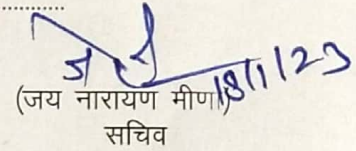 ...............
18/1/23
(जय नारायण मीणा)
सचिव